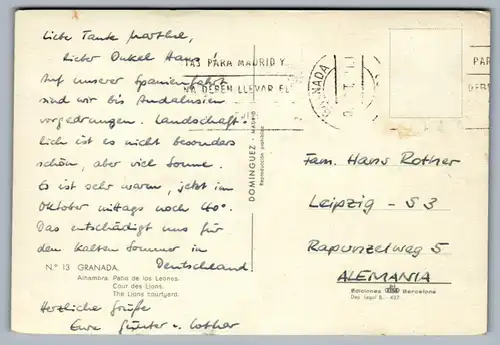 Liebe Tante Marthel,
Lieber Onkel Hans
Auf unserer Spanienfahrt
sind wir bis Andalusien
vorgedrungen. Landschaft-
lich ist es nicht besonders
schön, aber viel Sonne.
Es ist sehr warm, jetzt im
Oktober mittags noch 40°.
Das entschädigt uns für
den kalten Sommer in
Deutschland
N.º 13 GRANADA.
Alhambra. Patio de los Leones.
Cour des Lions.
The Lions courtyard.
Herzliche Grüße
Eure Günter u. Lothar
TAS PARA MADRID Y
NA DEBEN LLEVAR EL
GRANADA
PAR
DEBEN
DOMINGUEZ - MADRID
Reproducción prohibida
Fam. Hans Rother
Leipzig - S 3
Rapunzelweg 5
ALEMANIA
Ediciones Barcelona
Dep. Legal B. - 437